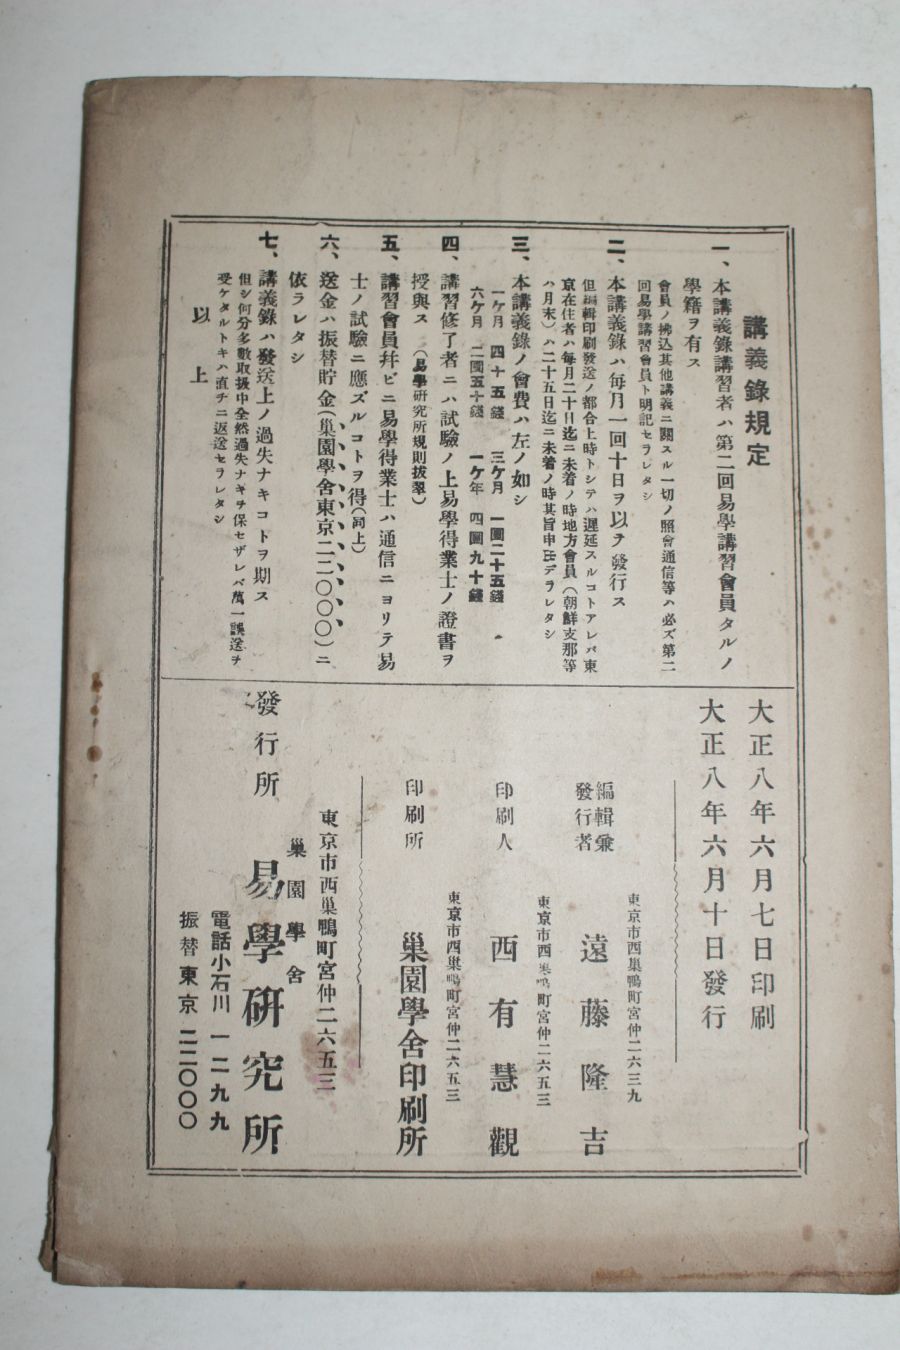 講義錄規定
一、本講義錄講習者ハ第二回易學講習會員タルノ
學籍ヲ有ス
會員ノ拂込其他講義ニ關スル一切ノ照會通信等ハ必ズ第二
回易學講習會員ト明記セラレタシ
二、本講義錄ハ每月一回十日ヲ以テ發行ス
但編輯印刷發送ノ都合上時トシテハ遲延スルコトアレバ東
京在住者ハ每月二十日迄ニ未着ノ時地方會員(朝鮮支那等
ハ月末)ハ二十五日迄ニ未着ノ時其旨申出デラレタシ
三、本講義錄ノ會費ハ左ノ如シ
一ケ月 四十五錢 三ケ月 一圓二十五錢
六ケ月 二圓五十錢 一ケ年 四圓九十錢
四、講習修了者ニハ試驗ノ上易學得業士ノ證書ヲ
授與ス (易學研究所規則拔翠)
五、講習會員幷ビニ易學得業士ハ通信ニヨリテ易
士ノ試驗ニ應ズルコトヲ得(同上)
六、送金ハ振替貯金(巢園學舍東京二二〇〇〇)ニ
依ラレタシ
七、講義錄ハ發送上ノ過失ナキコトヲ期ス
但シ何分多數取扱中全然過失ナキヲ保セザレバ萬一誤送ヲ
受ケタルトキハ直チニ返送セラレタシ
以上
大正八年六月七日印刷
大正八年六月十日發行
東京市西巢鴨町宮仲二六三九
編輯兼
發行者 遠藤隆吉
東京市西巢鴨町宮仲二六五三
印刷人 西有慧觀
東京市西巢鴨町宮仲二六五三
印刷所 巢園學舍印刷所
東京市西巢鴨町宮仲二六五三
巢園學舍
發行所 易學硏究所
電話小石川 一二九九
振替東京 二二〇〇〇